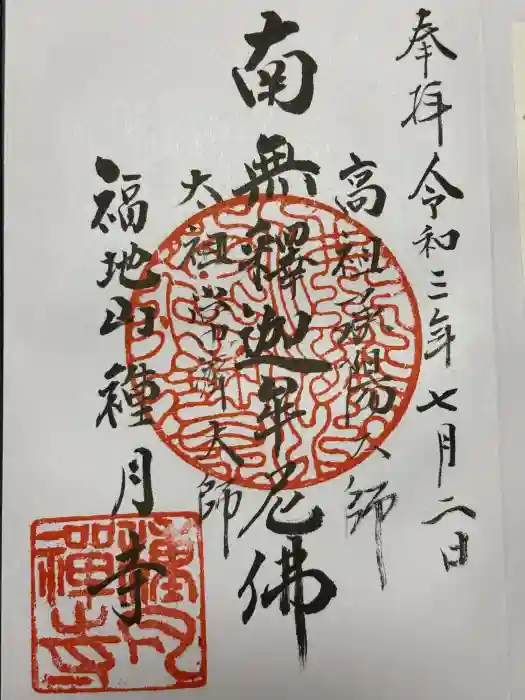 奉拝 令和三年七月二日
高祖承陽大師
南無釋迦牟尼佛
太祖常濟大師
福地山種月寺
種月禅寺